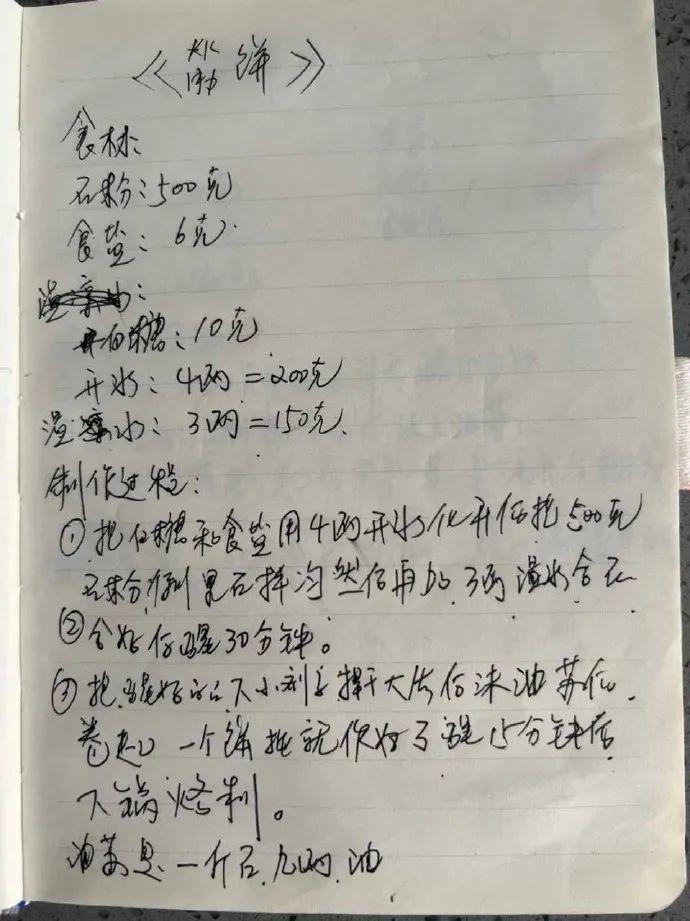 《 饼》
食材:
石粉:500克
食盐:6克.
白糖:10克
开水:4两=200克
温水:3两=150克.
制作过程:
①把白糖和食盐用4两开水化开后把500克
石粉 拌匀然后再加3两温水合石
②合好后醒30分钟。
③把醒好的下小剂子擀大片后抹油苏后.
卷起 一个饼 就做好了醒15分钟后
下锅烙制。
油苏是一斤石.九两.油